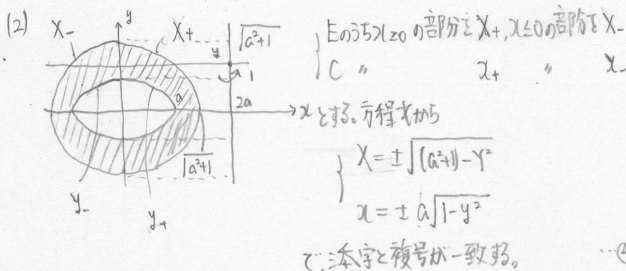 (2)
y
X-
X+
√a²+1
y
1
a
2a
x
√a²+1
y-
y+
Eのうちx≥0の部分をX+, x≤0の部分をX-
C 〃 x+ 〃 x-
とする。方程式から
X = ±√(a²+1)-Y²
x = ± a√1-y²
で、本字と複号が一致する。 …②